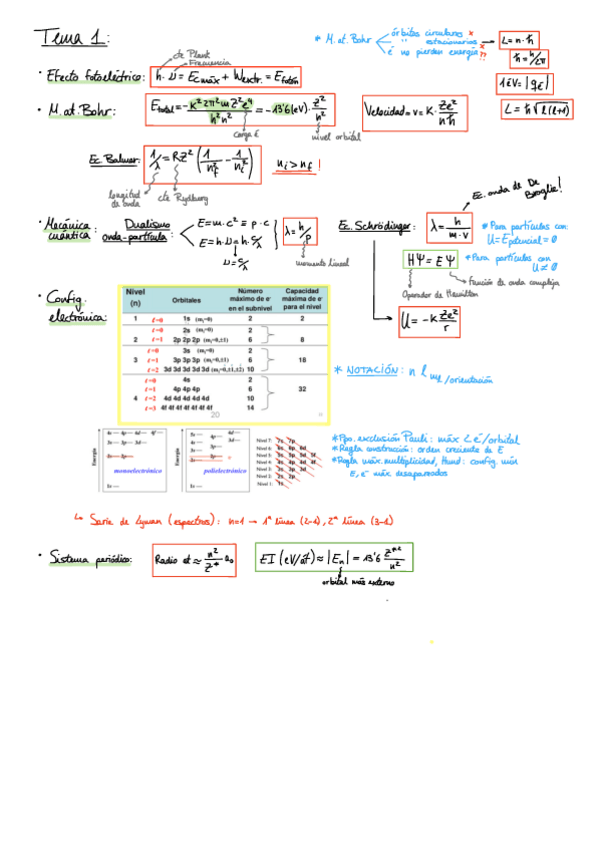 Tema 1:
* M. at. Bohr
órbitas circulares x
'' estacionarios x
é no pierden energía ??
L = n·ħ
ħ = h/2π
1 eV = |qE|
L = ħ√l(l+1)
cte Plank
Frecuencia
· Efecto fotoeléctrico: h·ν = Ec máx + Wextr. = E fotón
· M. at. Bohr: E total = -K² 2π² m Z² e⁴ / h² n² = -13'6 (eV) · Z²/n²
carga é
nivel orbital
Velocidad = v = K · Ze²/nħ
Ec Balmer: 1/λ = RZ² (1/nf² - 1/ni²)
ni > nf !
longitud de onda
cte Rydberg
Ec. onda de De Broglie!
· Mecánica cuántica: Dualismo onda-partícula:
E = m·c² = p·c
E = h·ν = h·c/λ
ν = c/λ
λ = h/p
momento lineal
Ec. Schrödinger:
λ = h / m·v
* Para partículas con: U = E potencial = 0
HΨ = EΨ
* Para partículas con U ≠ 0
Función de onda compleja
Operador de Hamilton
U = -K Ze²/r
· Config. electrónica:
Nivel (n) Orbitales Número máximo de e- en el subnivel Capacidad máxima de e- para el nivel
1 ℓ=0 1s (mℓ=0) 2 2
ℓ=0 2s (mℓ=0) 2
2 ℓ=1 2p 2p 2p (mℓ=0,±1) 6 8
ℓ=0 3s (mℓ=0) 2
3 ℓ=1 3p 3p 3p (mℓ=0,±1) 6 18
ℓ=2 3d 3d 3d 3d 3d (mℓ=0,±1,±2) 10
ℓ=0 4s 2
ℓ=1 4p 4p 4p 6 32
4 ℓ=2 4d 4d 4d 4d 4d 10
ℓ=3 4f 4f 4f 4f 4f 4f 4f 14
20
* NOTACIÓN: n l ml/orientación
Energía
monoelectrónico
Energía
polielectrónico
Nivel 7:
Nivel 6:
Nivel 5:
Nivel 4:
Nivel 3:
Nivel 2:
Nivel 1:
* Ppo. exclusión Pauli: máx 2 é/orbital
* Regla construcción: orden creciente de E
* Regla máx. multiplicidad, Hund: config. mín E, e⁻ máx desapareados
↳ Serie de Lyman (espectros): n=1 → 1ª línea (2-1), 2ª línea (3-1)
· Sistema periódico: Radio at ≈ n²/Z* a₀
EI (eV/at) ≈ |En| = 13'6 Z*²/n²
orbital más externo